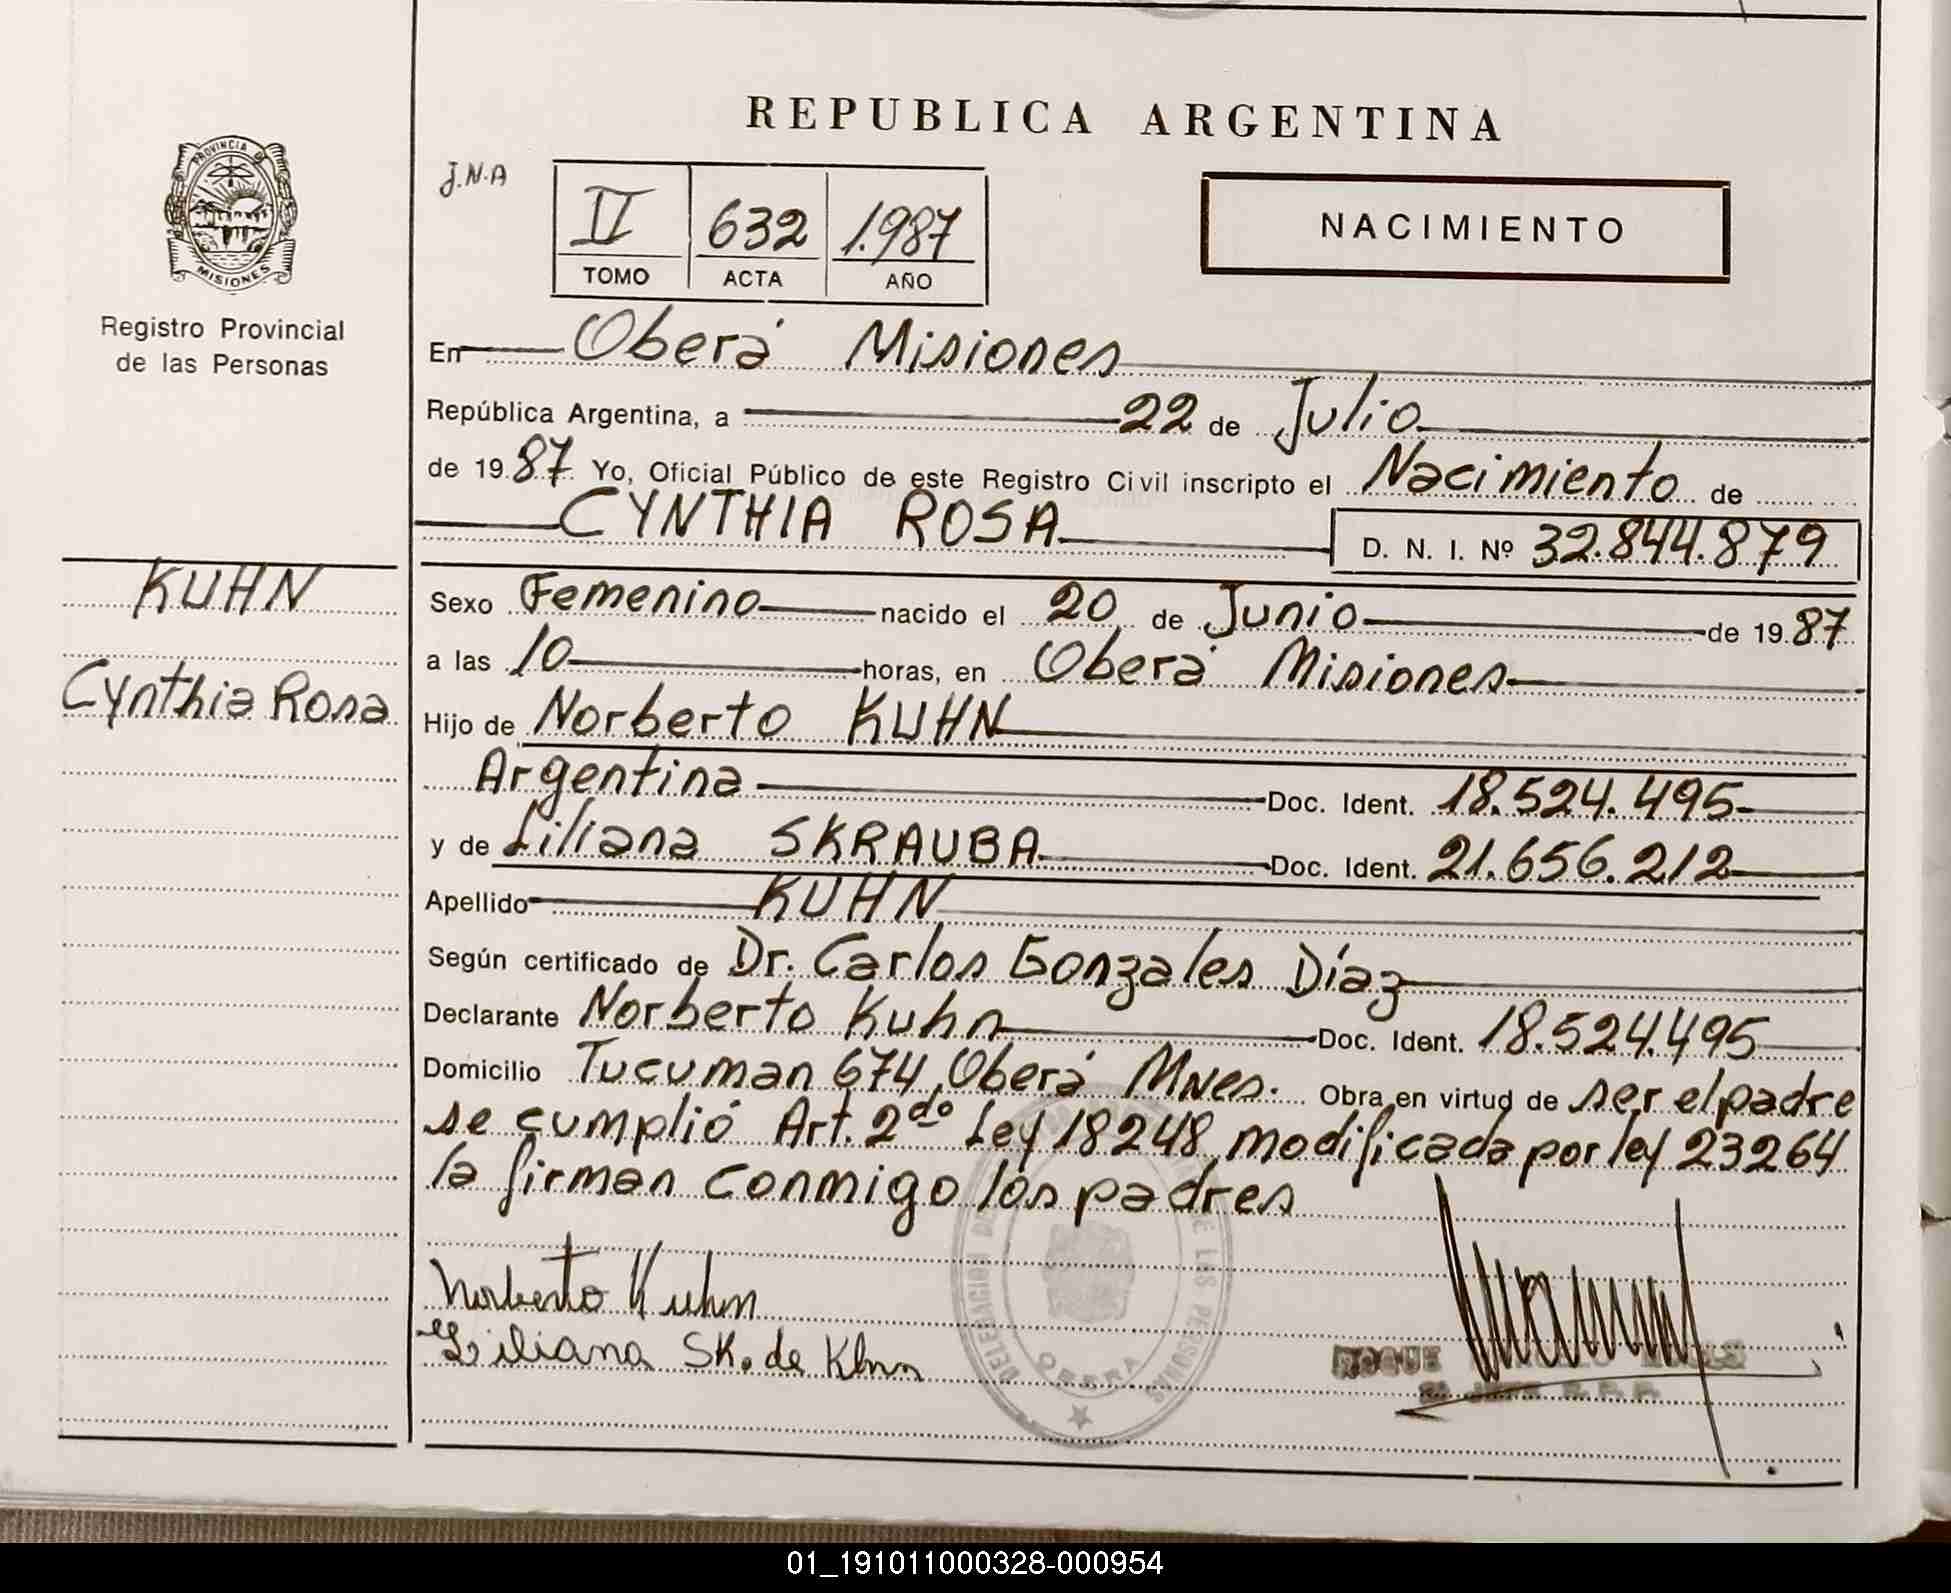 REPUBLICA ARGENTINA
PROVINCIA DE
MISIONES
Registro Provincial
de las Personas
J.N.A
II 632 1.987
TOMO ACTA AÑO
NACIMIENTO
En Oberá Misiones
República Argentina, a 22 de Julio
de 19 87 Yo, Oficial Público de este Registro Civil inscripto el Nacimiento de
CYNTHIA ROSA D. N. I. Nº 32.844.879
KUHN
Cynthia Rosa
Sexo Femenino nacido el 20 de Junio de 19 87
a las 10 horas, en Oberá Misiones
Hijo de Norberto KUHN
Argentina Doc. Ident. 18.524.495
y de Liliana SKRAUBA Doc. Ident. 21.656.212
Apellido KUHN
Según certificado de Dr. Carlos Gonzales Díaz
Declarante Norberto Kuhn Doc. Ident. 18.524.495
Domicilio Tucuman 674, Oberá Mnes. Obra en virtud de ser el padre
se cumplió Art. 2do Ley 18248, modificada por ley 23264
la firman conmigo los padres
Norberto Kuhn
Liliana SK. de Khnn
DELEGACION DE LAS PERSONAS
OBERA
ROQUE
01_191011000328-000954